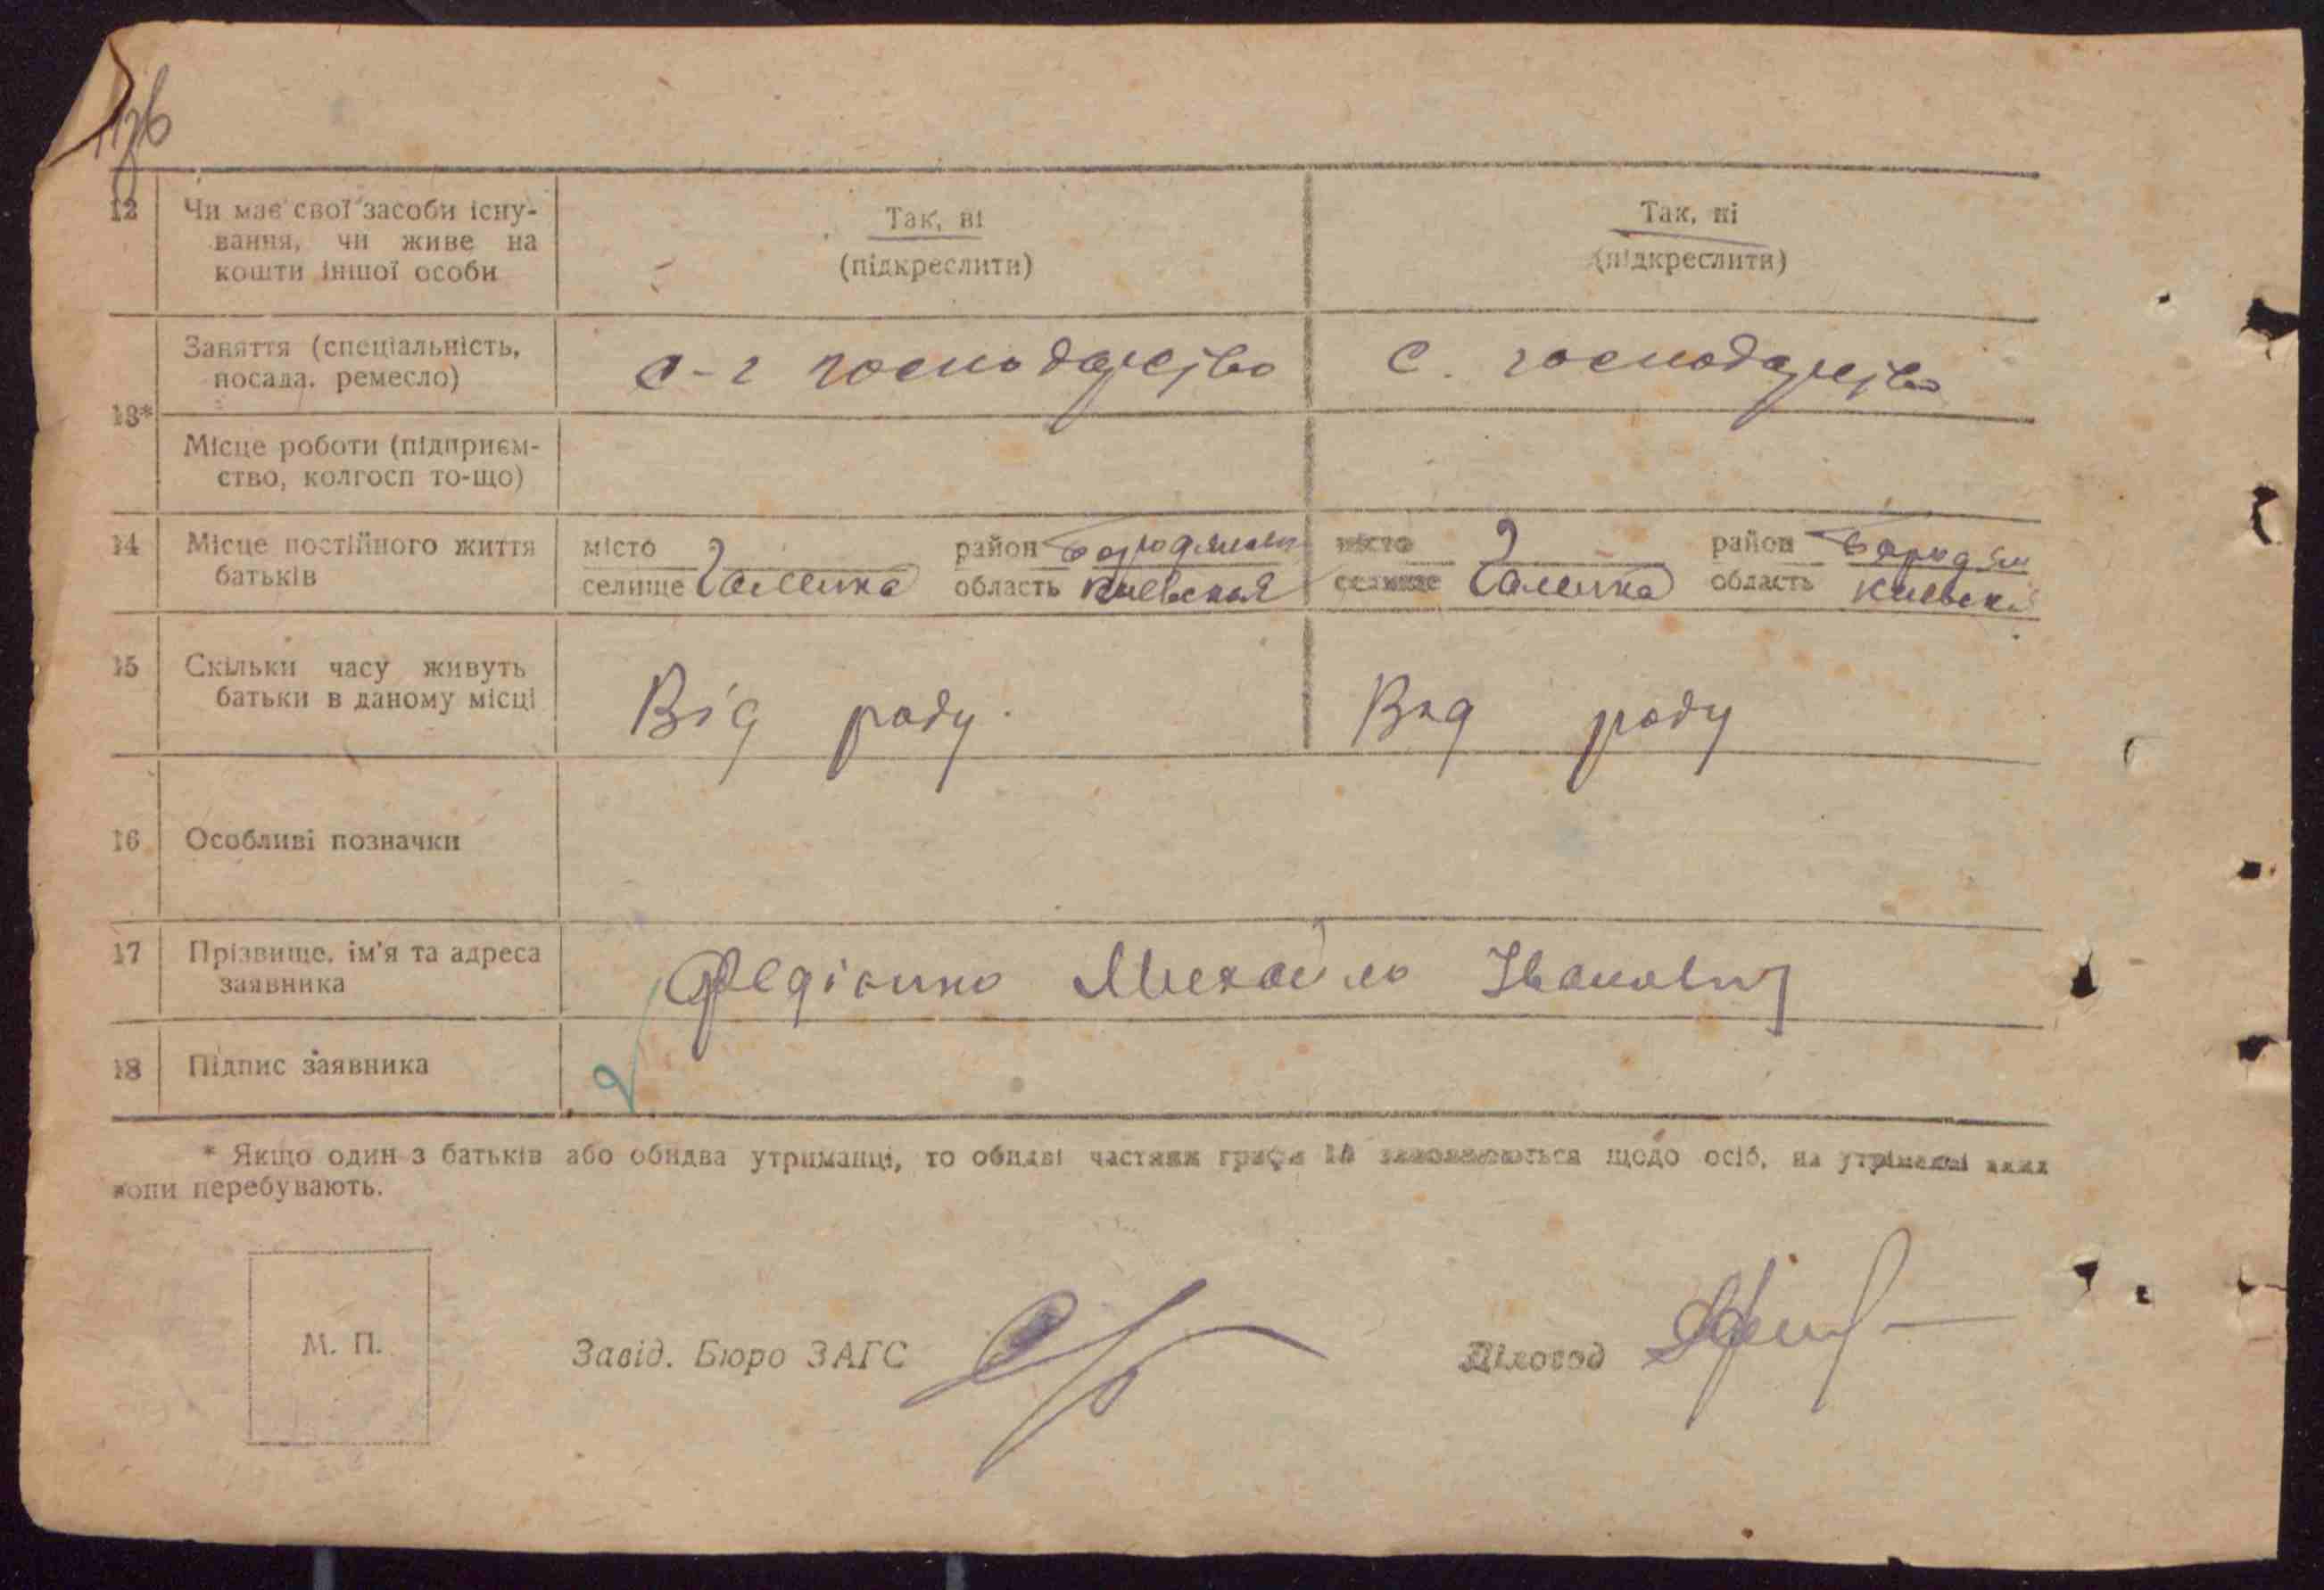 12 Чи має свої засоби існу-
вання, чи живе на
кошти іншої особи
Так, ні
(підкреслити)
Так, ні
(підкреслити)
13*
Заняття (спеціальність,
посада, ремесло)
с-г господарство
с. господарство
Місце роботи (підприєм-
ство, колгосп то-що)
14 Місце постійного життя
батьків
місто
селище Галинка
район Бородянськ
область Киевская
місто
селище Галинка
район Бородян
область Киевск
15 Скільки часу живуть
батьки в даному місці
Від роду.
Вид роду
16 Особливі позначки
17 Прізвище, ім'я та адреса
заявника
Михайло Іванович
18 Підпис заявника
* Якщо один з батьків або обидва утриманці, то обидві частини графи 13 заповнюються щодо осіб, на утриманні яких
вони перебувають.
М. П.
Завід. Бюро ЗАГС
Діловод